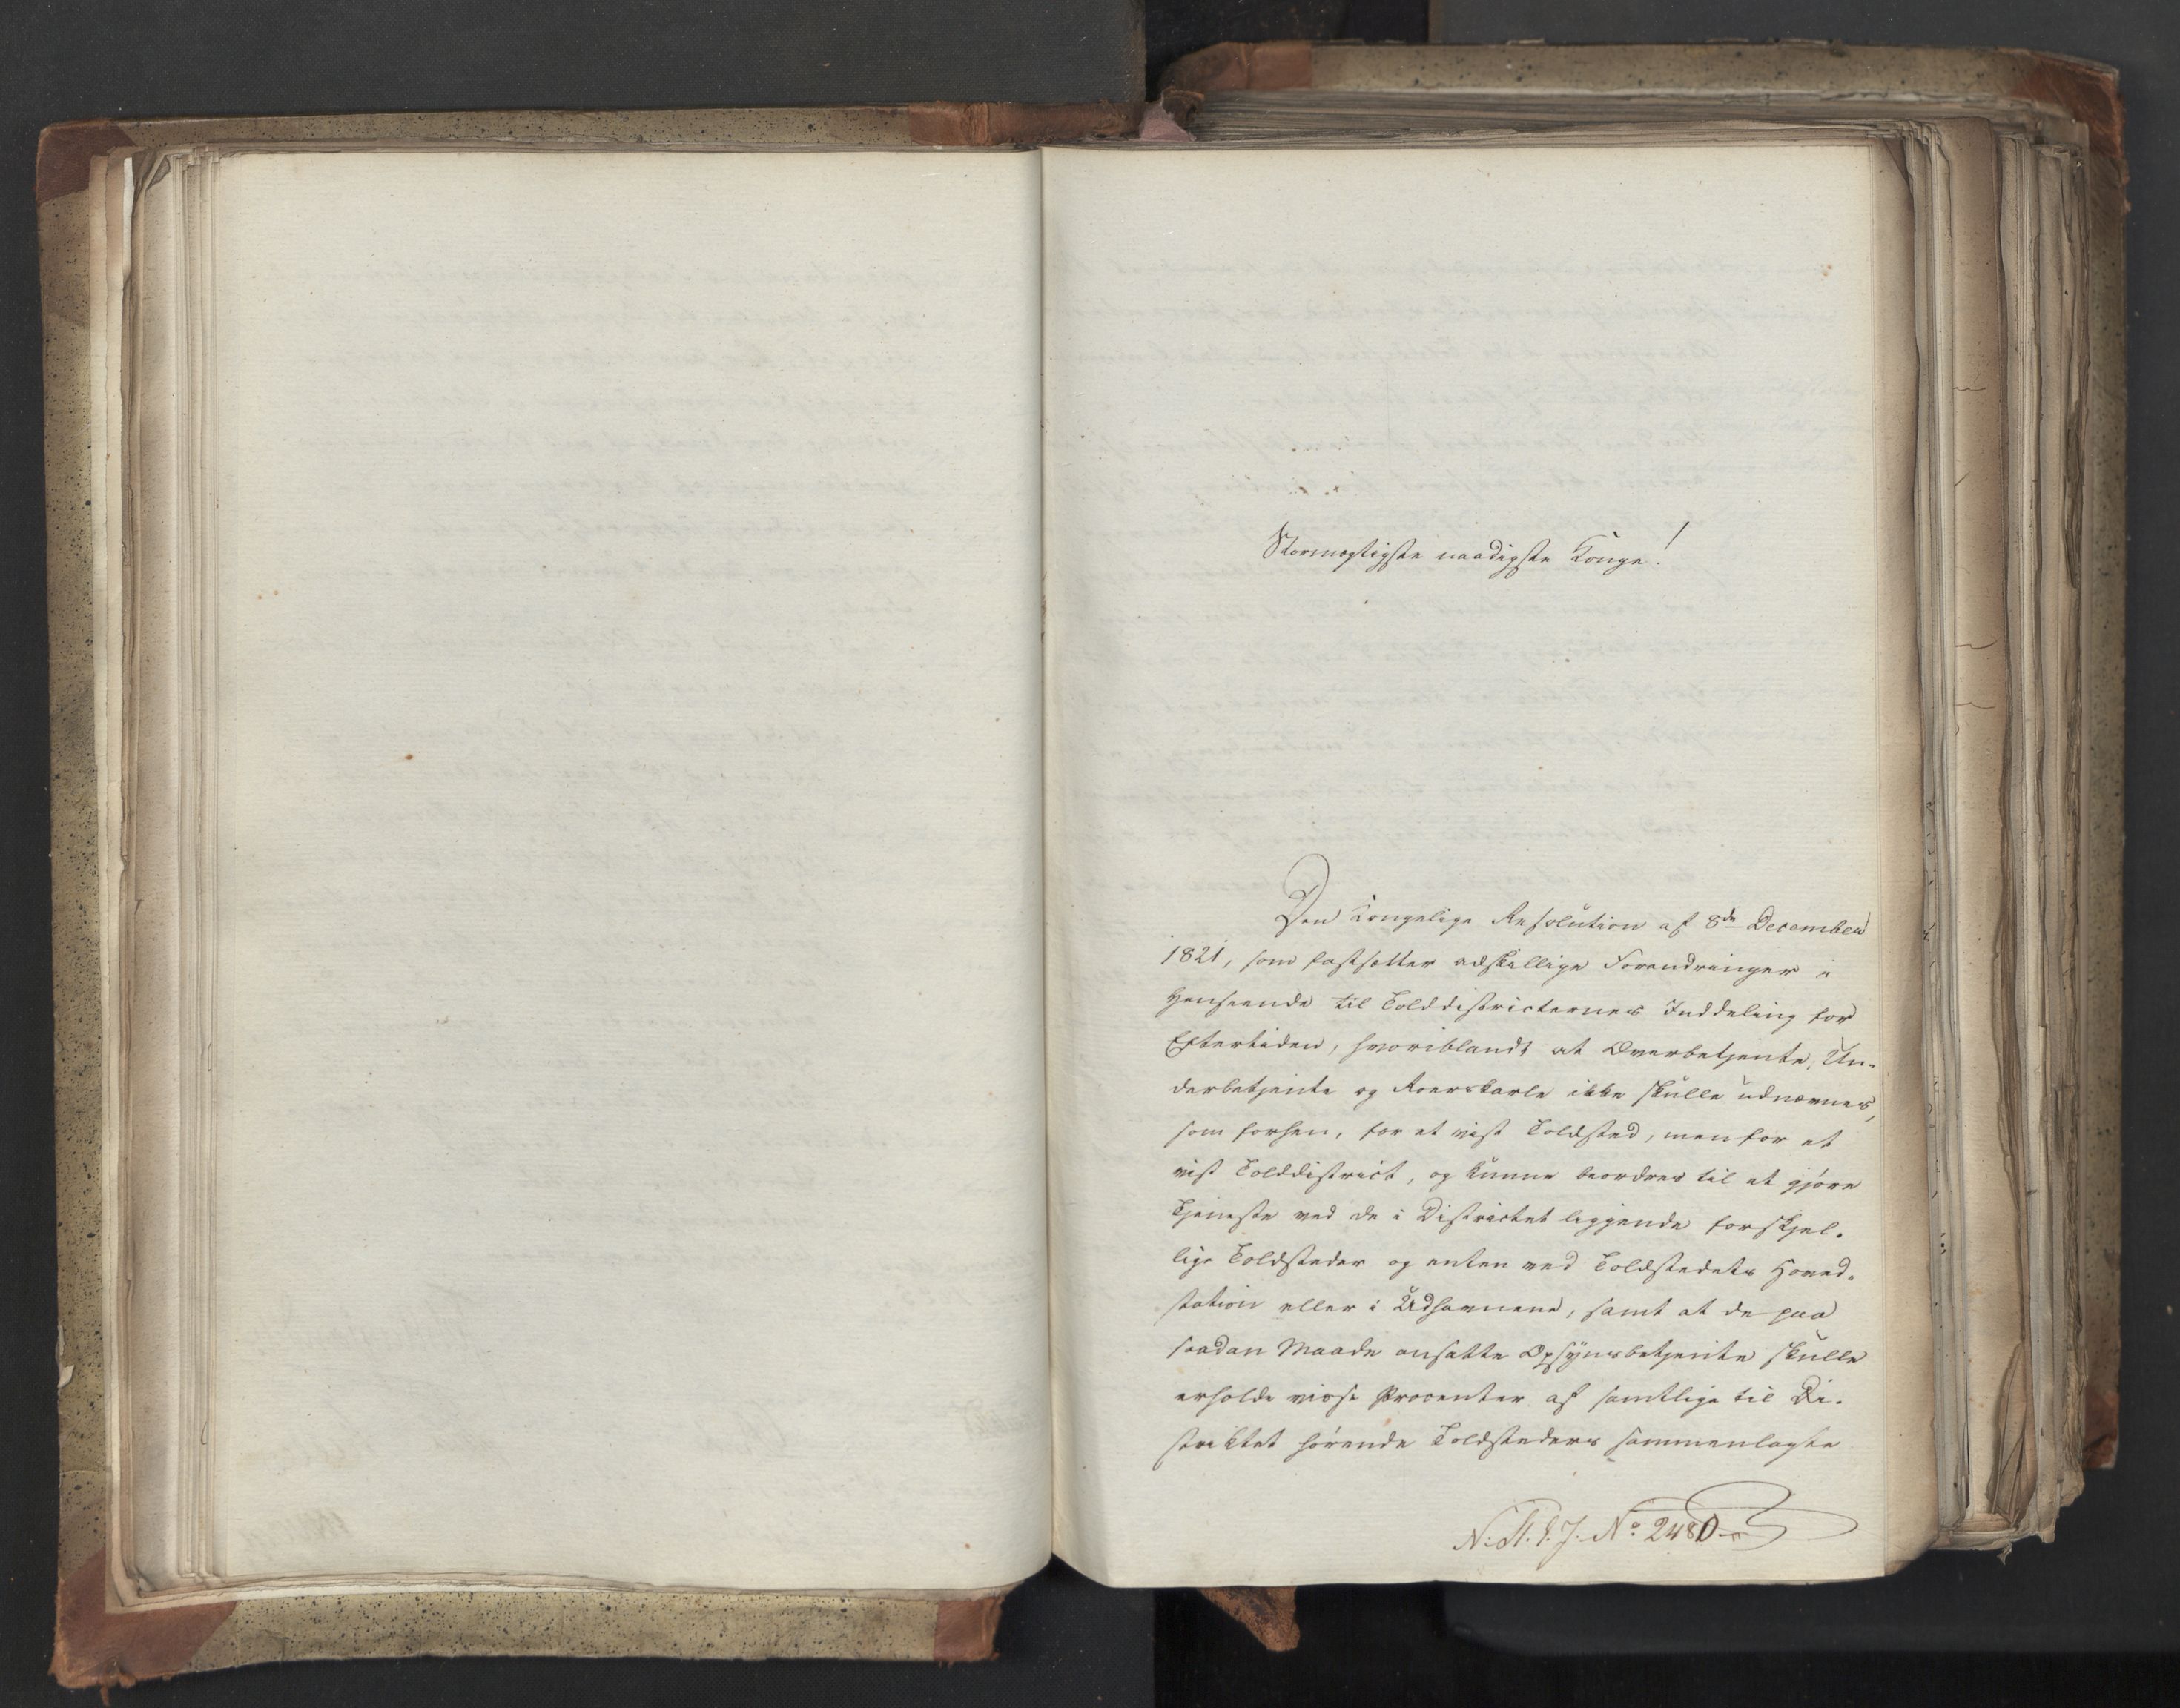 Stormægtigste naadigste Konge!
Den kongelige Resolution af 8de December
1821, som fastsætter adskillige Forandringer i
Henseende til Tolddistricternes Inddeling for
Eftertiden, hvoriblandt at Overbetjente, Un-
derbetjente og Roerskarle ikke skulle udnævnes,
som forhen, for et vist Toldsted, men for et
vist Tolddistrict, og kunne beordres til at gjøre
Tjeneste ved de i Districtet liggende forskjel-
lige Toldsteder og enten ved Toldstedets Hoved-
station eller i Udhavnene, samt at de paa
saadan Maade ansatte Opsynsbetjente skulle
erholde visse Procenter af samtlige til Di-
striktet hørende Toldsteders sammenlagte
No 2480